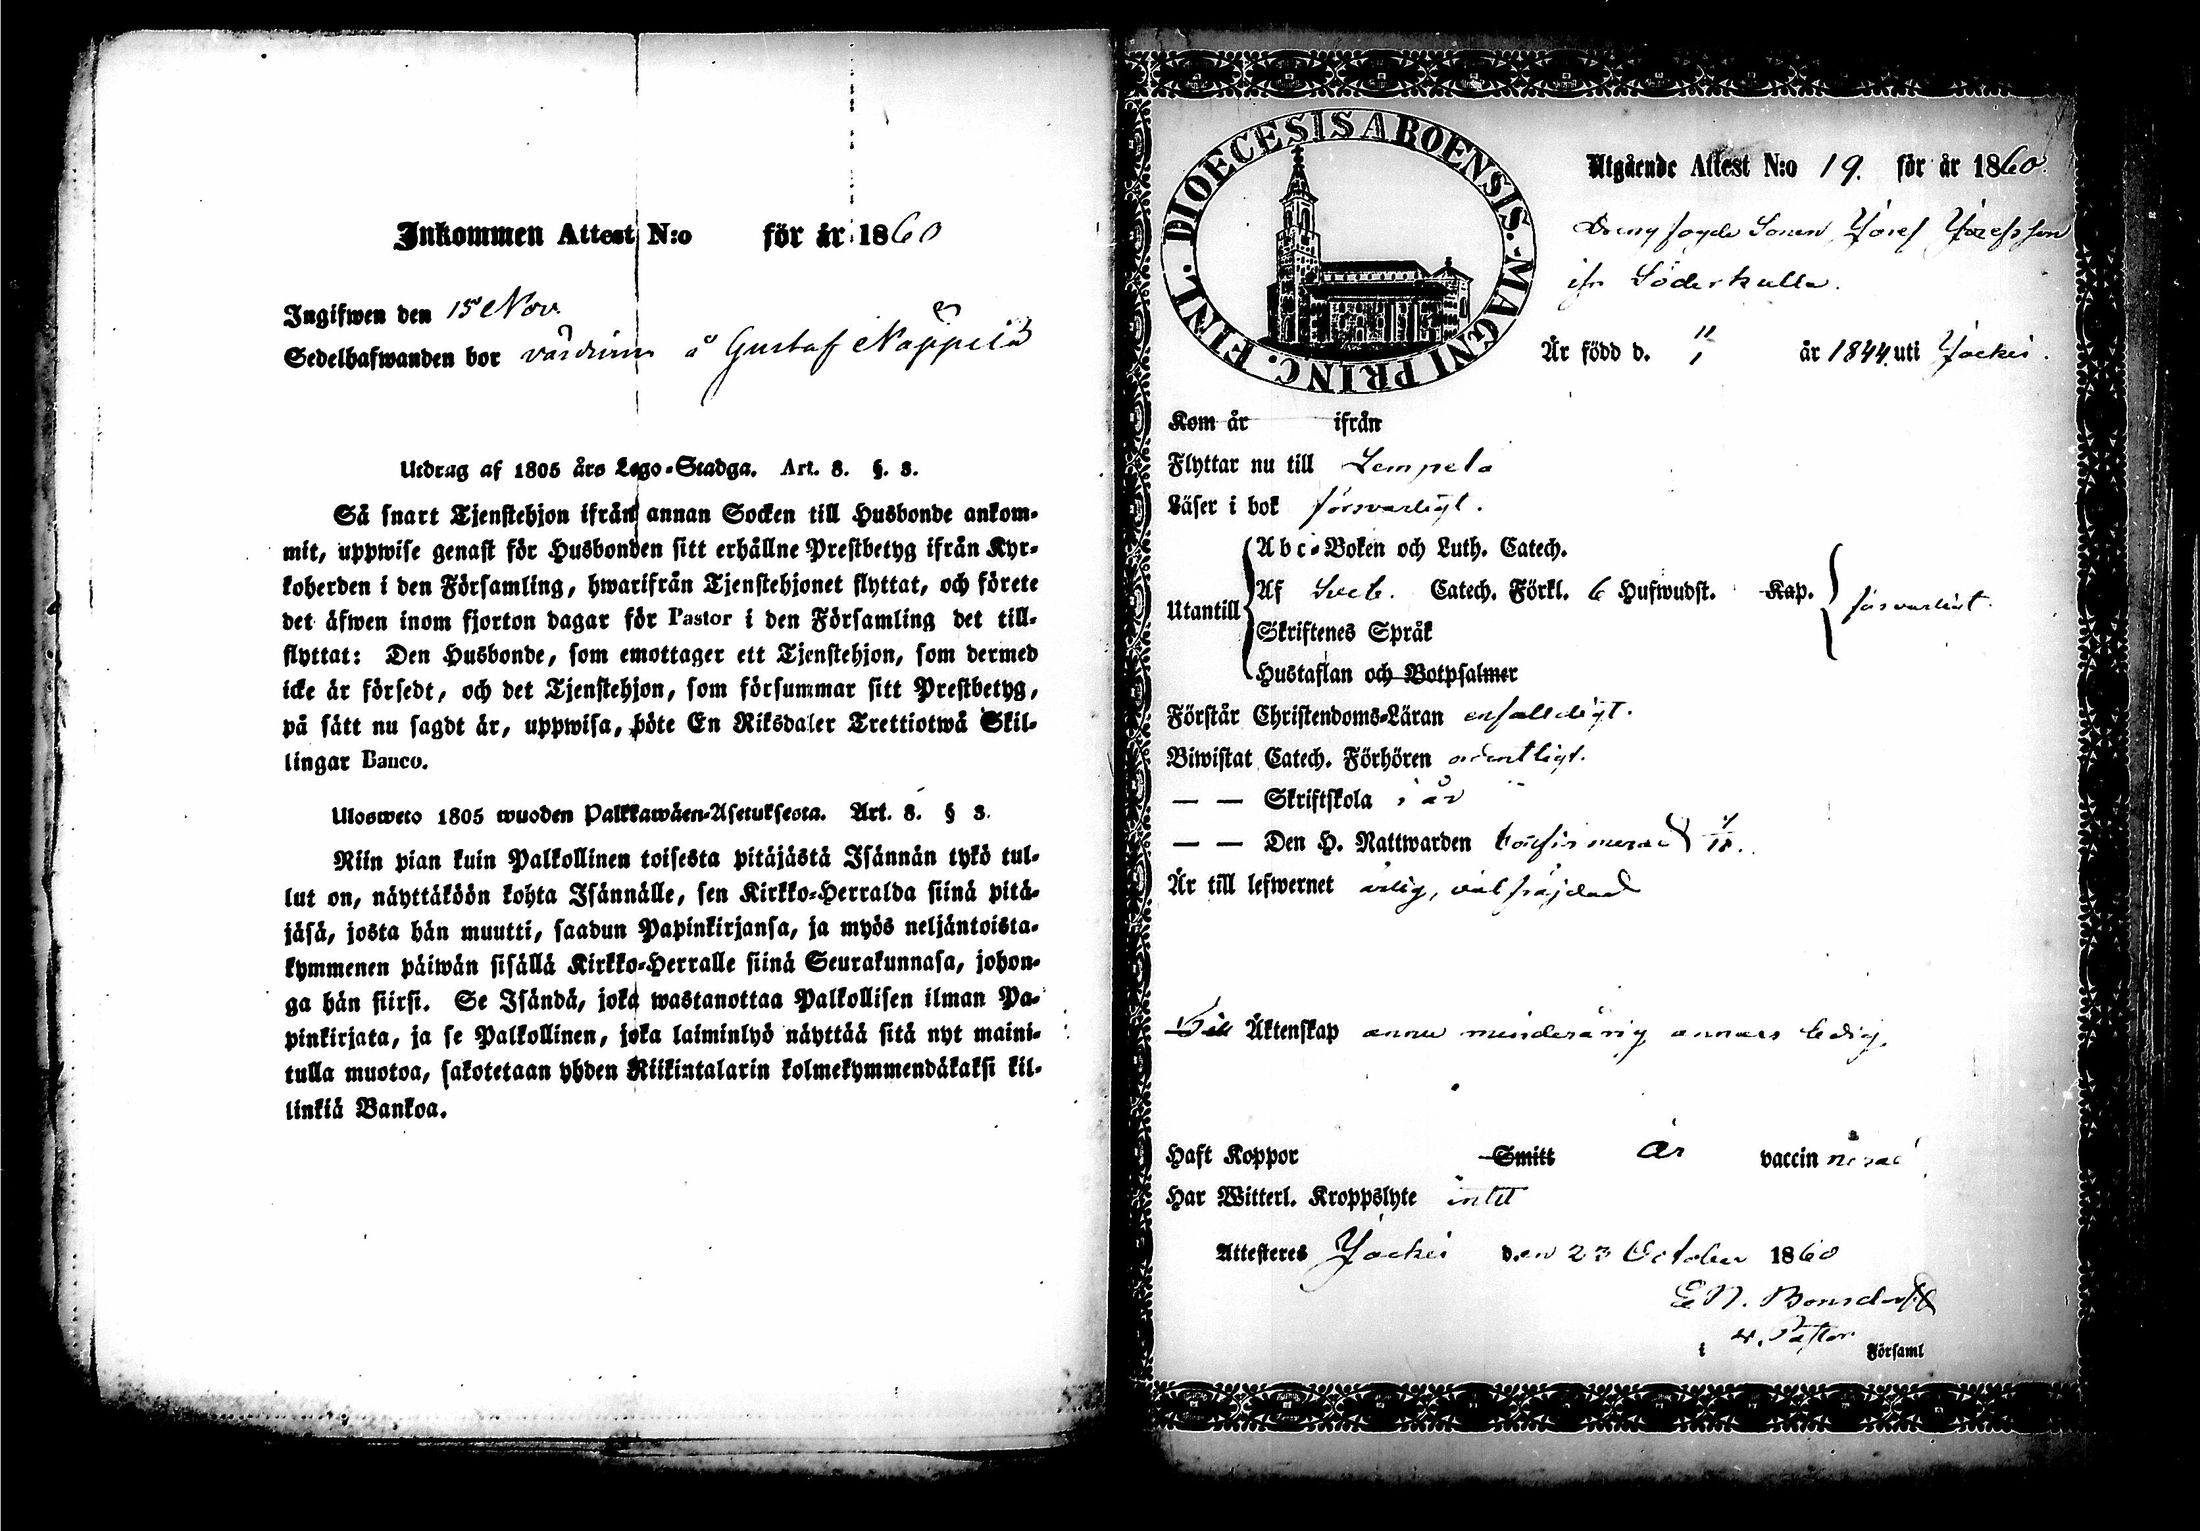 Inkommen Attest N:o för år 1860
Ingifwen den 15 Nov.
Sedelhafwanden bor å Gustaf Näppilä
Utdrag af 1805 års Lego-Stadga. Art. 8. §. 3.
Så snart Tjenstehjon ifrån annan Socken till Husbonde ankom-
mit, uppwise genast för Husbonden sitt erhållne Prestbetyg ifrån Kyr-
koherden i den Församling, hwarifrån Tjenstehjonet flyttat, och förete
det äfwen inom fjorton dagar för Pastor i den Församling det till-
flyttat: Den Husbonde, som emottager ett Tjenstehjon, som dermed
icke är försedt, och det Tjenstehjon, som försummar sitt Prestbetyg,
på sätt nu sagdt är, uppwisa, böte En Riksdaler Trettiotwå Skil-
lingar Banco.
Ulosweto 1805 wuoden Palkkawäen-Asetuksesta. Art. 8. § 3.
Niin pian kuin Palkollinen toisesta pitäjästä Isännän tykö tul-
lut on, näyttäköön kohta Isännälle, sen Kirkko-Herralda siinä pitä-
jäsä, josta hän muutti, saadun Papinkirjansa, ja myös neljäntoista-
kymmenen päiwän sisällä Kirkko-Herralle siinä Seurakunnasa, johon-
ga hän siirsi. Se Isändä, joka wastanottaa Palkollisen ilman Pa-
pinkirjata, ja se Palkollinen, joka laiminlyö näyttää sitä nyt maini-
tulla muotoa, sakotetaan yhden Riikintalarin kolmekymmendäkaksi kil-
linkiä Bankoa.
DIOECESIS ABOENSIS. MAGNI PRINC. FINL.
Utgående Attest N:o 19. för år 1860.
Drengfogde Sonen Josef Josefsson
ifr Söderkulla.
Är född d. 11/1 år 1844. uti Jockis.
Kom år ifrån
Flyttar nu till Lempela
Läser i bok försvarligt.
Abc-Boken och Luth. Catech.
Utantill Af Sveb. Catech. Förkl. 6 Hufwudst. Kap. försvarligt.
Skriftenes Språk
Hustaflan och Botpsalmer
Förstår Christendoms-Läran enfaldigt.
Biwistat Catech. Förhören ordentligt.
— — Skriftskola i år
— — Den H. Nattwarden confirmerad
Är till lefwernet ärlig, väl frejdad
Till Äktenskap ännu minderårig annars ledig.
Haft Koppor Smitt är vaccinerad
Har Witterl. Kroppslyte intet
Attesteres Jockis den 23 October 1860
E N. Bonsdorff
v. Pastor
i Församl